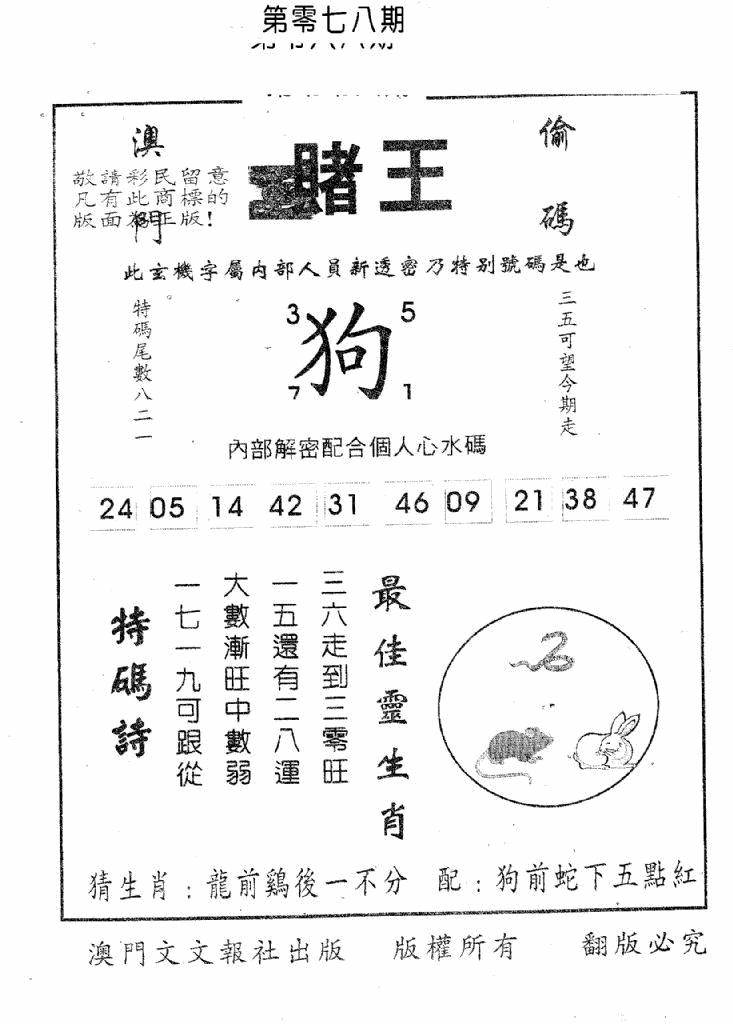 第零七八期
澳門
賭王
偷碼
敬請彩民留意
凡有此商標的
版面為正版!
此玄機字屬內部人員新透密乃特別號碼是也。
特碼尾數八二一
3 5
狗
7 1
三五可望今期走
內部解密配合個人心水碼
24 05 14 42 31 46 09 21 38 47
最佳靈生肖
三六走到三零旺
一五還有二八運
大數漸旺中數弱
一七一九可跟從
特碼詩
猜生肖：龍前鷄後一不分 配：狗前蛇下五點紅
澳門文文報社出版 版權所有 翻版必究